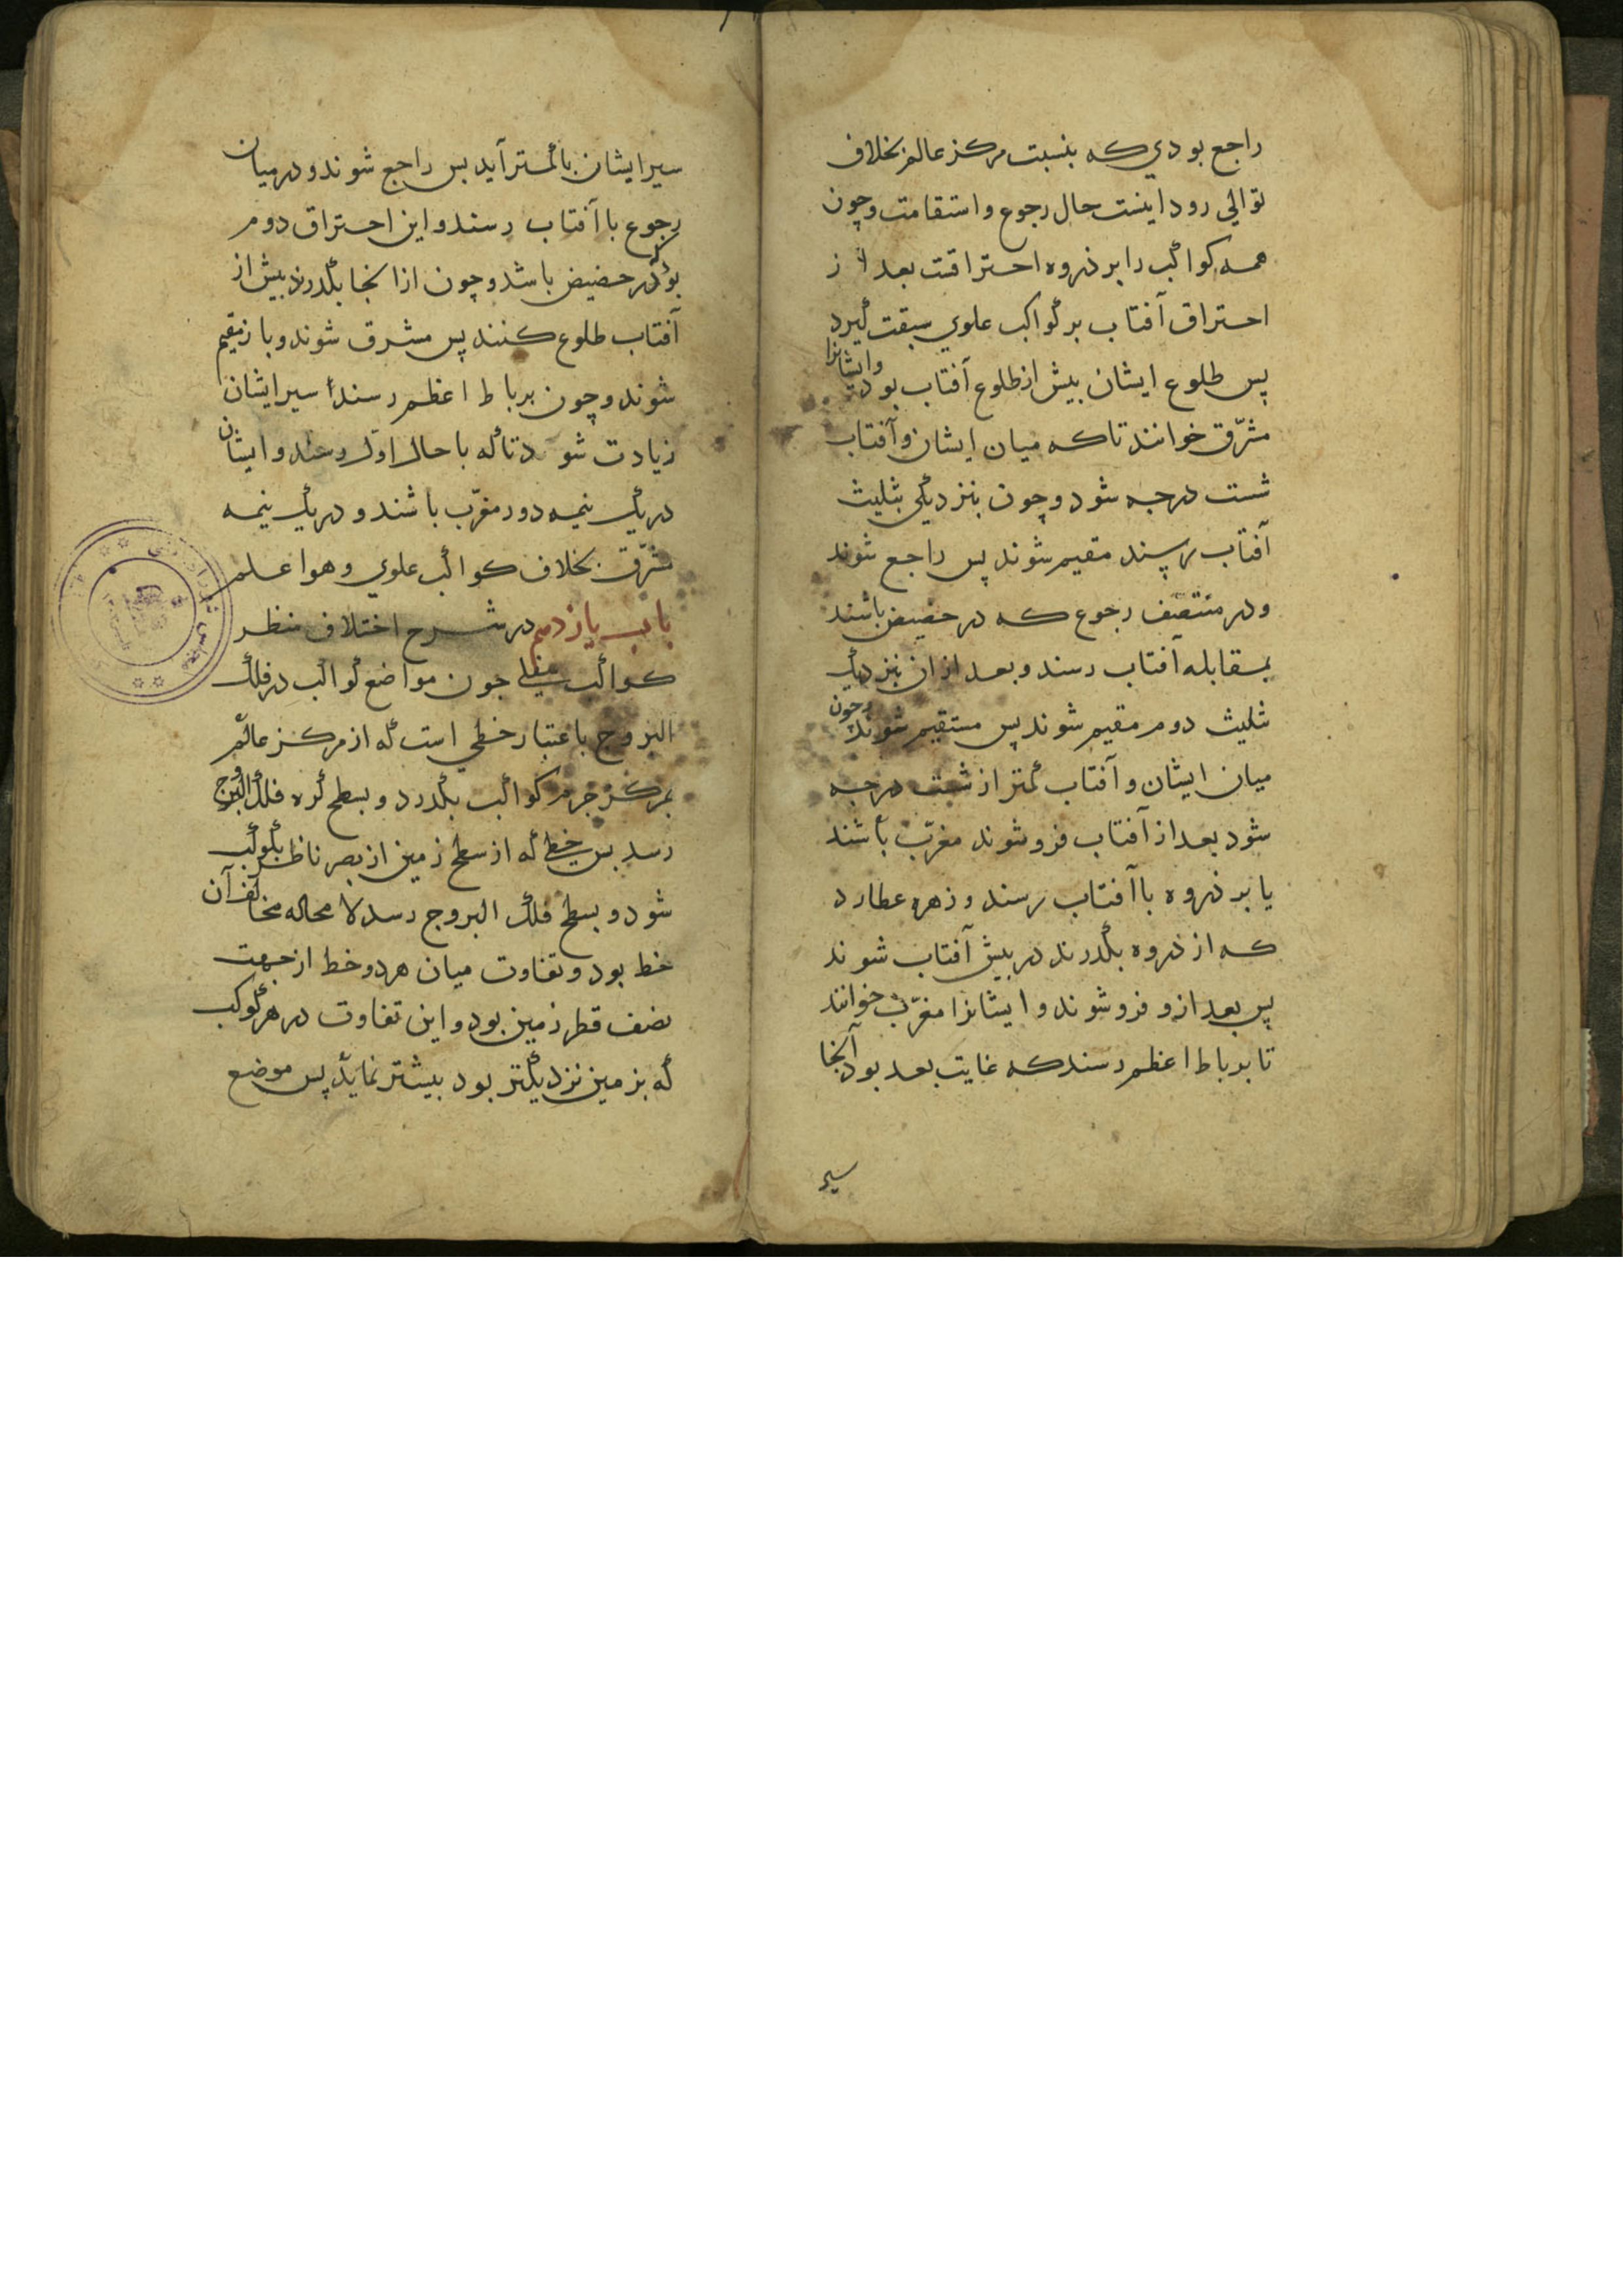 راجع بودي که بنسبت مرکز عالم بخلاف
توالي رود اينست حال رجوع و استقامت و چون
همه کواکب را بر ذروه احتراقت بعد از
احتراق آفتاب بر کواکب علوي سبقت گيرد
پس طلوع ايشان بيش از طلوع آفتاب بود و ايشانرا
مشرّق خوانند تا که ميان ايشان و آفتاب
شست درجه شود و چون بنزديکي بثليث
آفتاب رسند مقيم شوند پس راجع شوند
و در منتصف رجوع که در حضيض باشند
بمقابله آفتاب رسند و بعد از ان بنزديک
ثليث دوم مقيم شوند پس مستقيم شوند و چون
ميان ايشان و آفتاب کمتر از شست درجه
شود بعد از آفتاب فرو شوند مغرّب باشند
يا بر ذروه با آفتاب رسند و زهره عطارد
که از ذروه بگذرند در بيش آفتاب شوند
پس بعد از و فرو شوند و ايشانرا مغرّب خوانند
تا برباط اعظم رسند که غايت بعد بود آنجا
سير
سير ايشان با کمتر آيد بس راجع شوند و در ميان
رجوع با آفتاب رسند و اين احتراق دوم
بود که در حضيض باشد و چون از انجا بگذرند بيش از
آفتاب طلوع کنند پس مشرق شوند و باز مقيم
شوند و چون برباط اعظم رسند سير ايشان
زيادت شود تا که با حال اول رسند و ايشان
در يک نيمه دور مغرّب باشند و در يک نيمه
مشرّق بخلاف کواکب علوي و هو اعلم
باب يازدهم در شرح اختلاف منظر
کواکب سفلي چون مواضع کواکب در فلک
البروج باعتبار خطي است که از مرکز عالم
بمرکز جرم کواکب بگذرد و بسطح کره فلک البروج
رسد بس خطي که از سطح زمين از بصر ناظر بکوکب
شود و بسطح فلک البروج رسد لا محاله مخالف آن
خط بود و تفاوت ميان هر دو خط از جهت
نصف قطر زمين بود و اين تفاوت در هر کوکب
که بزمين نزديکتر بود بيشتر نمايد پس موضع